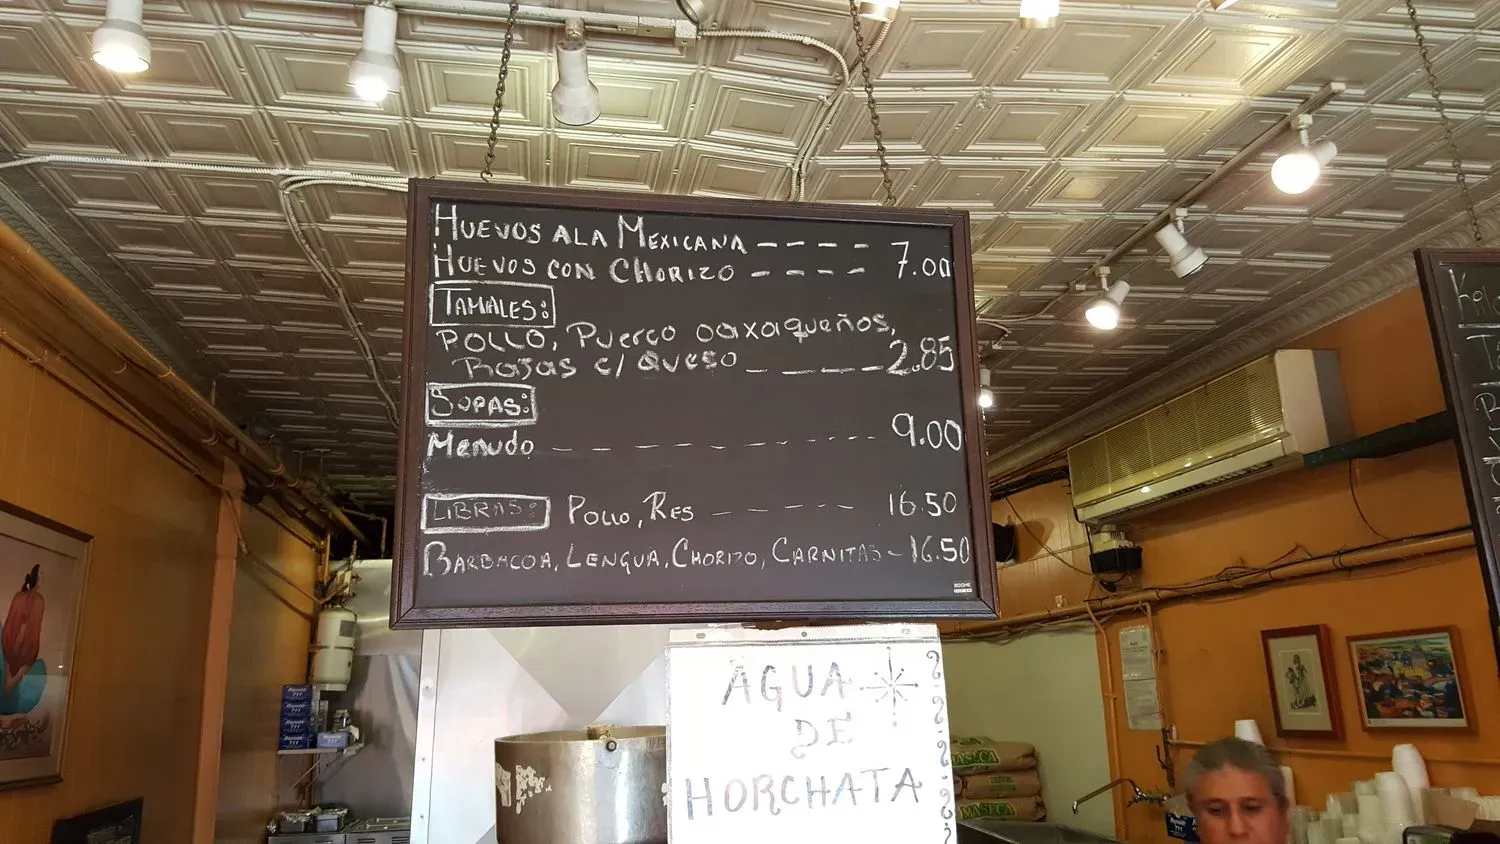 HUEVOS ALA MEXICANA ----
HUEVOS CON CHORIZO ---- 7.00
TAMALES:
POLLO, Puerco oaxaqueños,
Rajas c/ Queso _ _ _ _ 2.85
SOPAS:
Menudo - - - - - - - - - 9.00
LIBRAS: POLLO, RES - - - - - 16.50
BARBACOA, LENGUA, CHORIZO, CARNITAS - 16.50
AGUA
DE
HORCHATA
MASECA
MASECA